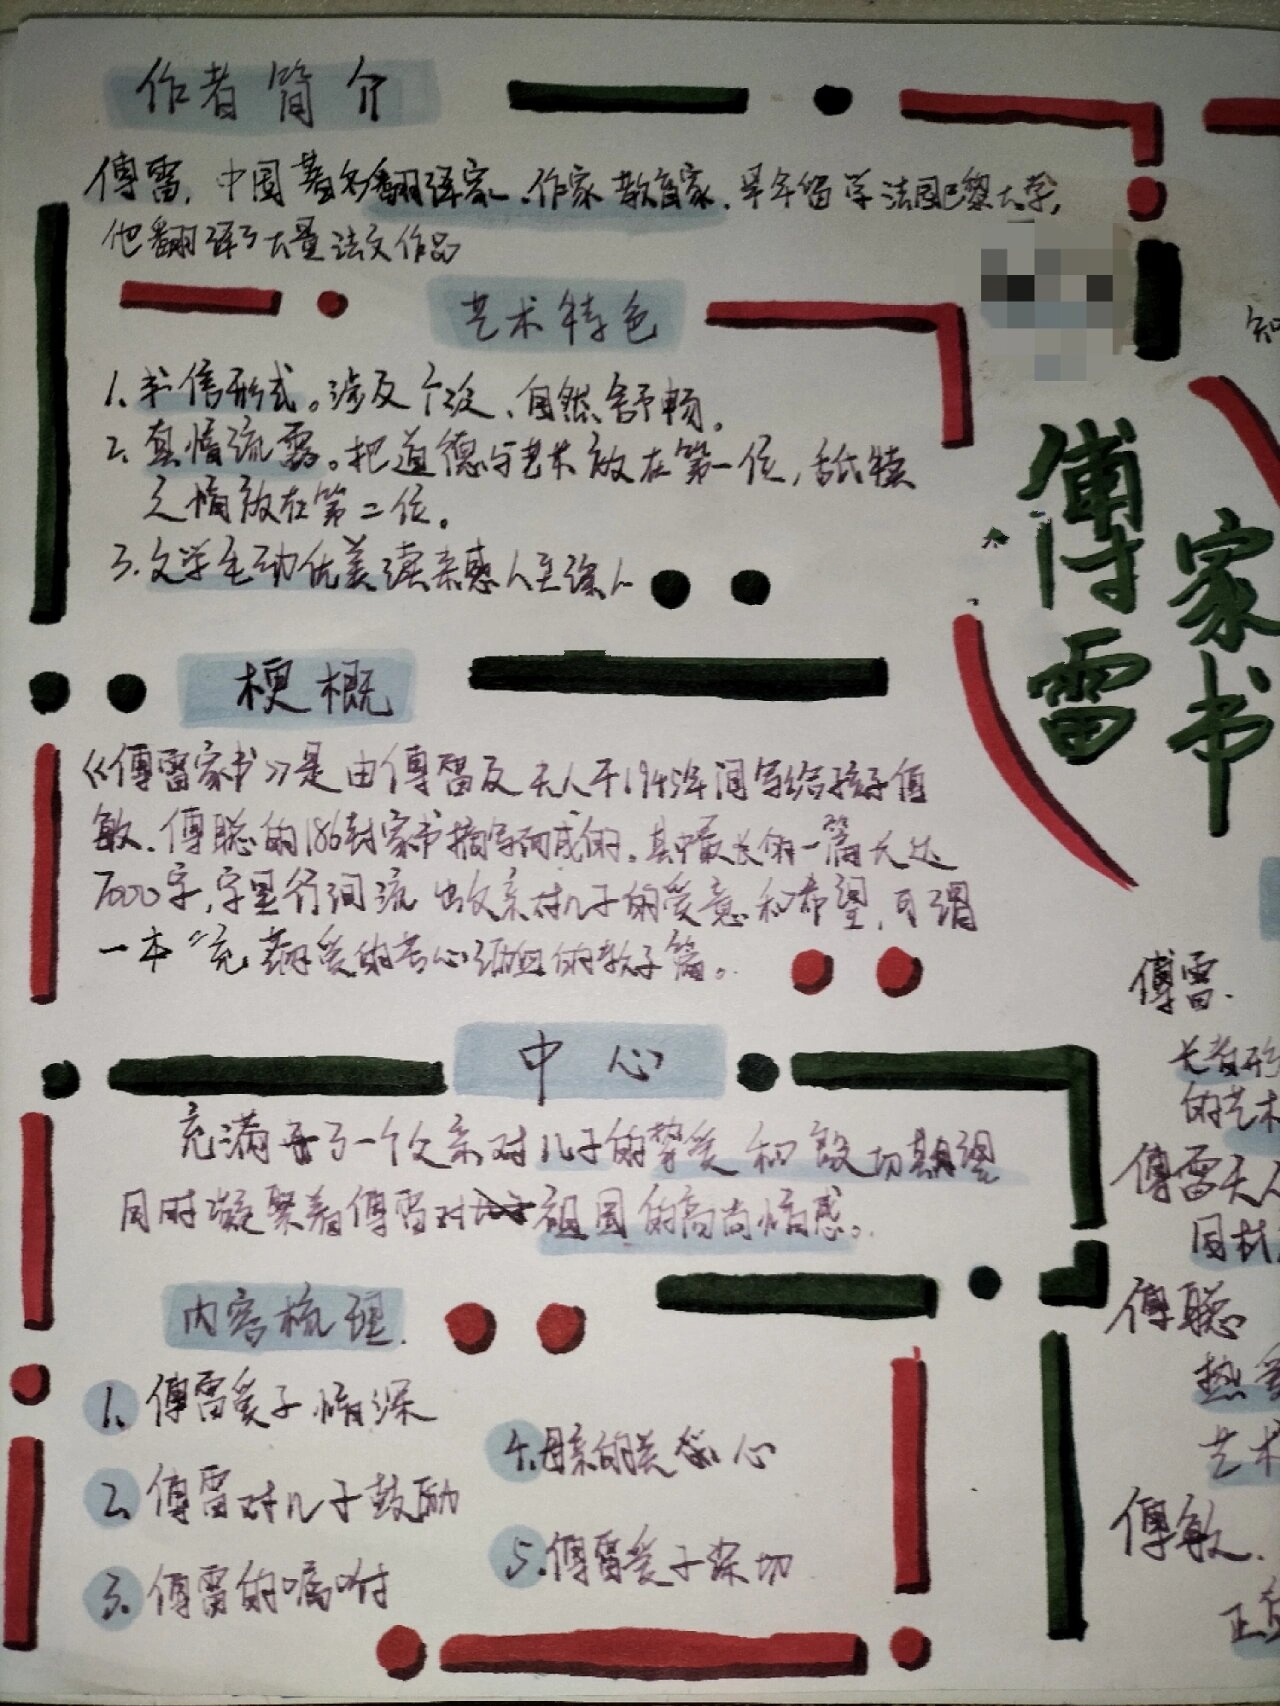 作者简介
傅雷,中国著名翻译家、作家 教育家,早年留学法国巴黎大学,
他翻译了大量法文作品
艺术特色
1、书信形式。涉及个 、自然舒畅。
2、真情流露。把道德与艺术放在第一位,舐犊
之情放在第二位。
3、文学生动优美读来感人至深
梗概
《傅雷家书》是由傅雷及夫人于1945年间写给孩子傅
敏、傅聪的186封家书摘写而成的,其中最长的一篇长达
7000字,字里行间流出父亲对儿子的爱意和希望,可谓
一本“充 爱的苦心 的教子篇。
中心
充满 了一个父亲对儿子的挚爱和殷切期望
同时凝聚着傅雷对 祖国的高尚情感。
内容梳理
1、傅雷爱子情深
2、傅雷对儿子鼓励
3、傅雷的嘱咐
4、母亲的关 心
5、傅雷爱子深切
傅雷
家书
知
傅雷.
长者形
的艺术
傅雷夫人
因材
傅聪
热爱
艺术
傅敏.
正